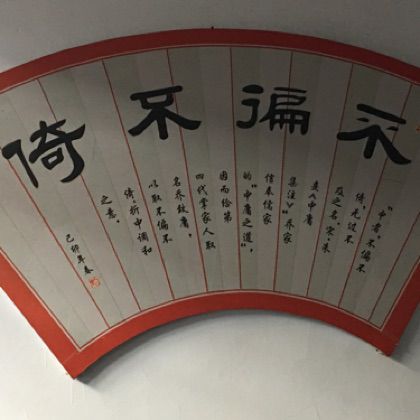 不徧不倚
“中者，不偏不
倚，无过不
及之名”宋·朱
熹《中庸
集注》乔家
信奉儒家
的“中庸之道”，
因而给第
四代掌家人取
名乔致庸，
以取不偏不
倚，折中调和
之意。
己卯年春